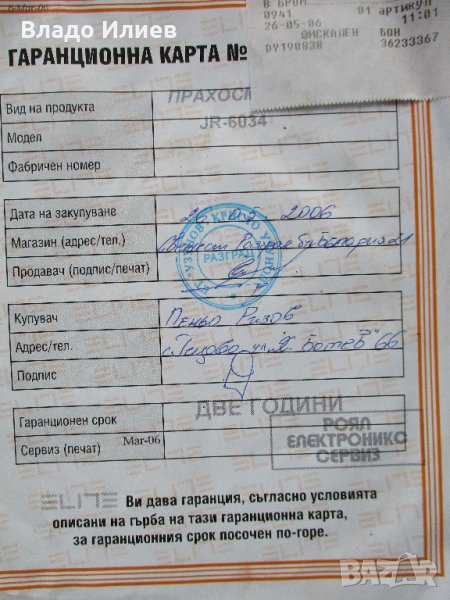 Владо Илиев
В БРОЙ
0941 01 артикул
26-05-06 11:01
ФИСКАЛЕН БОН
DY190838 36233367
ГАРАНЦИОННА КАРТА №
Вид на продукта ПРАХОСМ
Модел JR-6034
Фабричен номер
Дата на закупуване 26.05.2006
Магазин (адрес/тел.)
Продавач (подпис/печат) РАЗГРАД
Купувач Пеньо Ризов
Адрес/тел. ул. "Х. Ботев" 66
Подпис
Гаранционен срок ДВЕ ГОДИНИ
Сервиз (печат) Mar-06
РОЯЛ
ЕЛЕКТРОНИКС
СЕРВИЗ
ELITE Ви дава гаранция, съгласно условията
описани на гърба на тази гаранционна карта,
за гаранционния срок посочен по-горе.
BAZAR